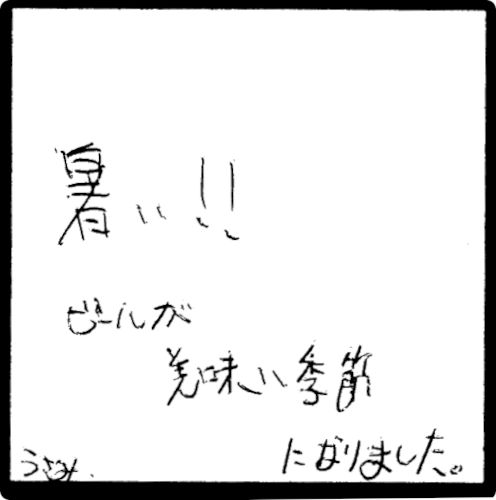 暑い!!
ビールが
美味い季節
になりました。
うさみ.